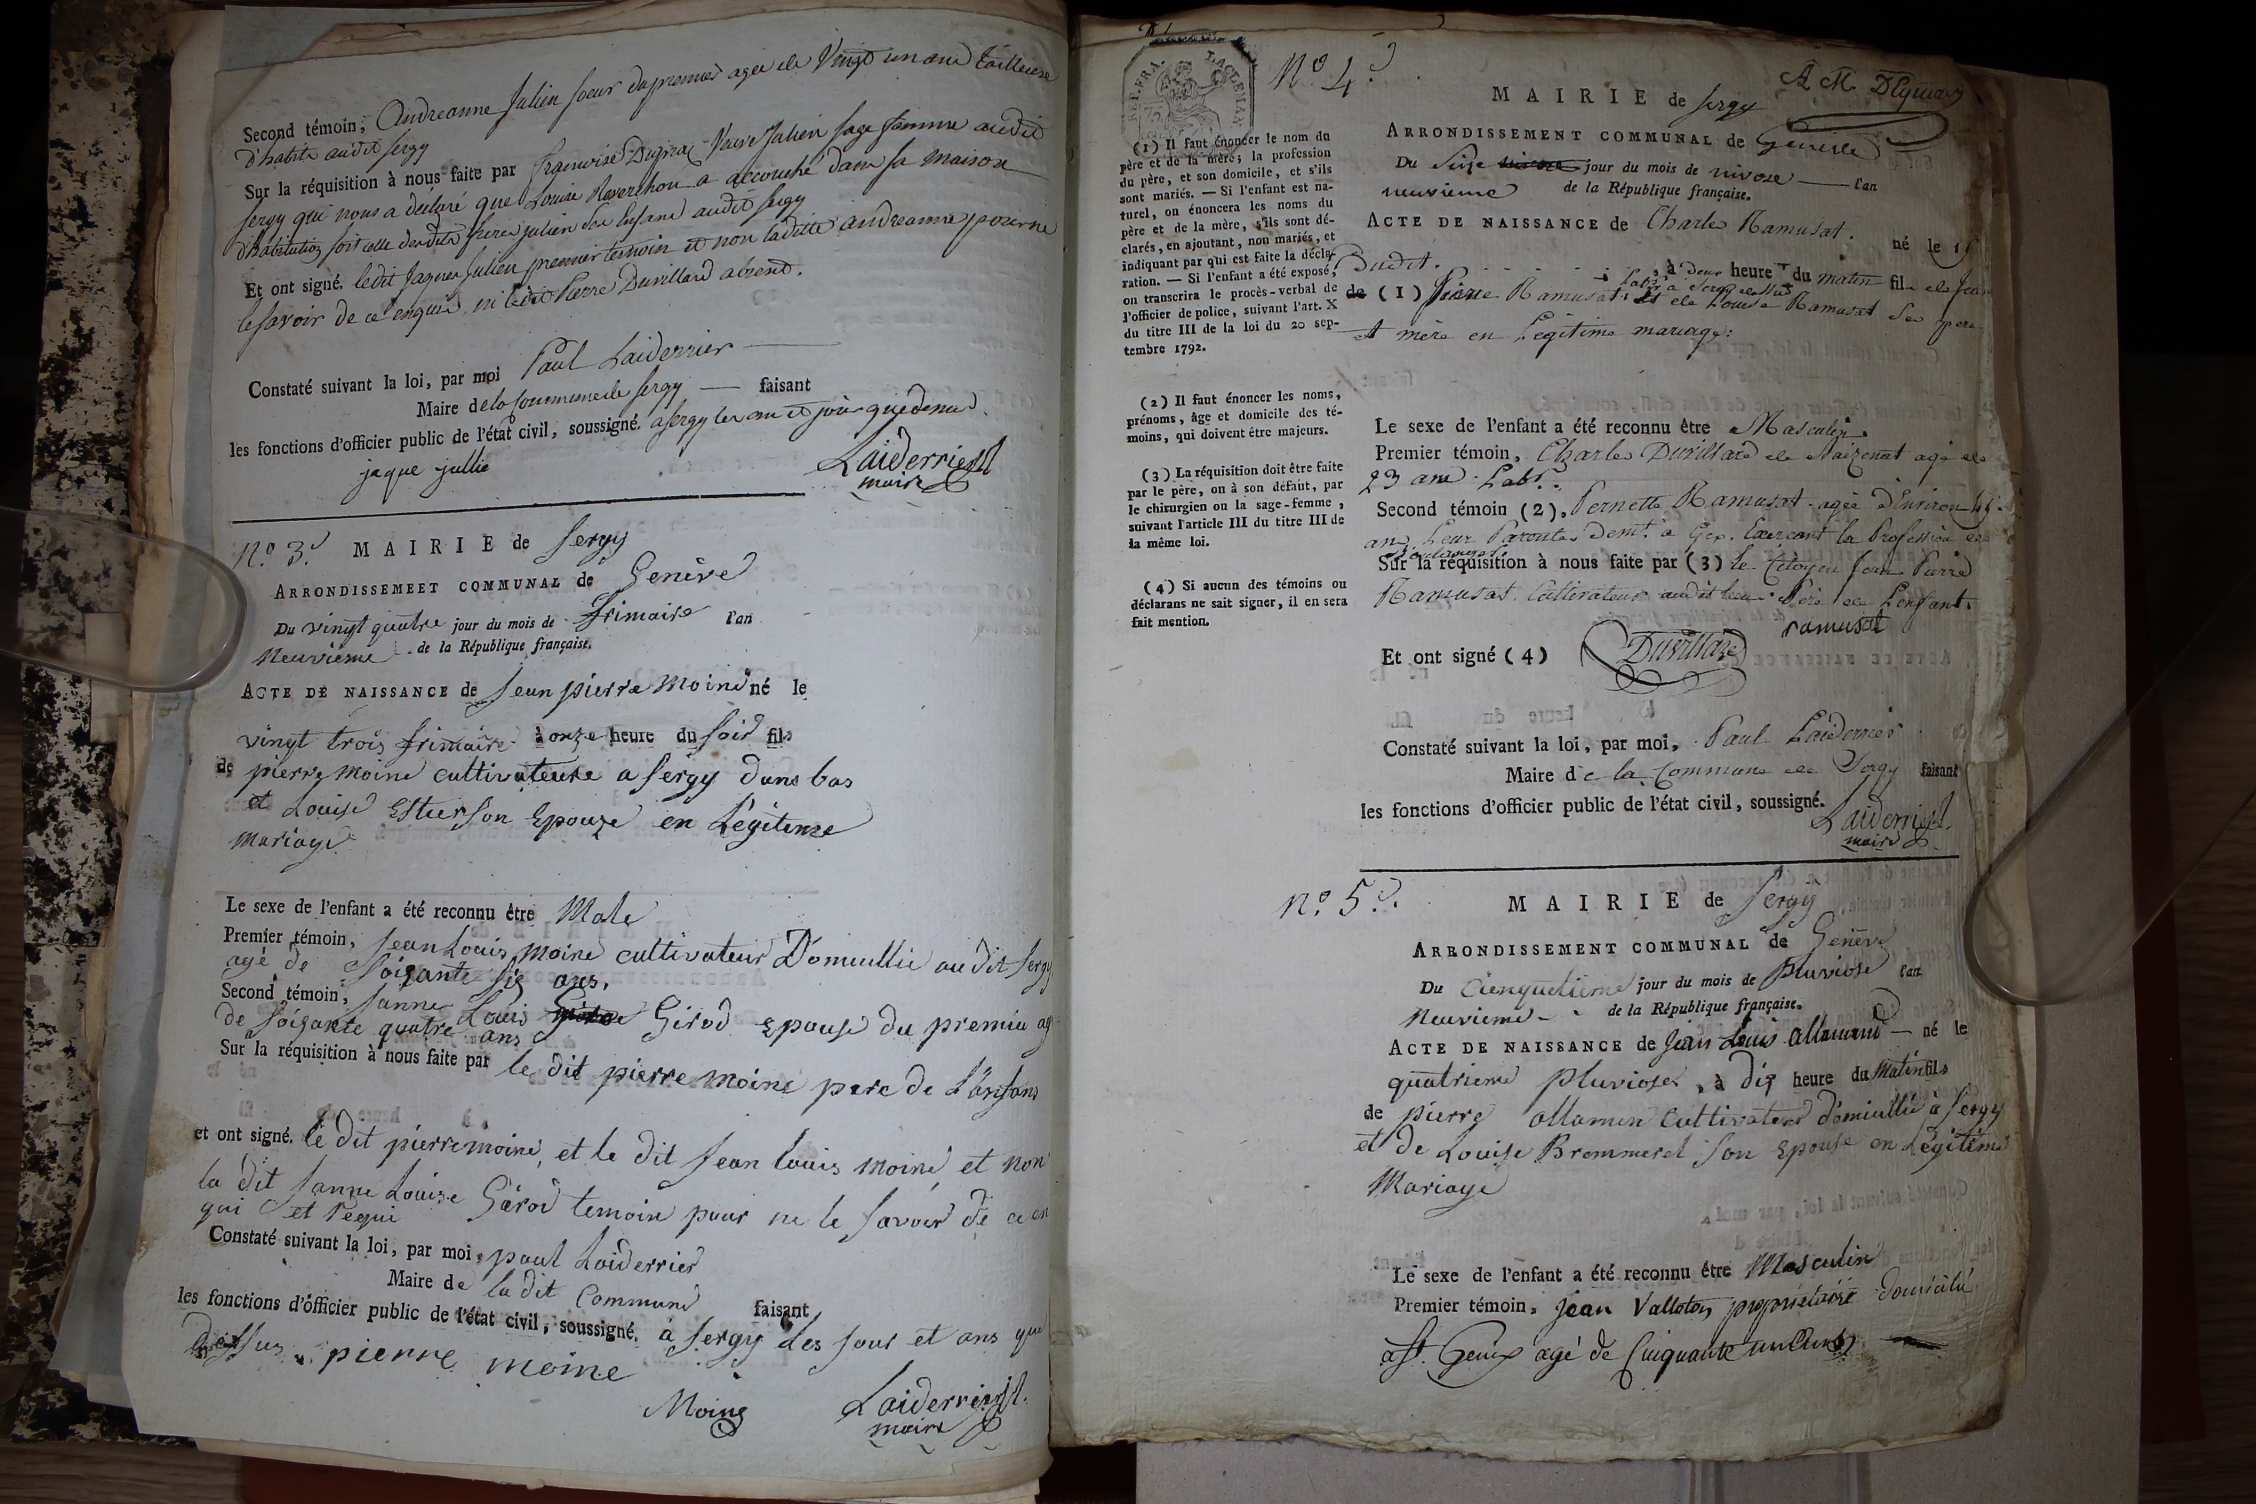 Second témoin, Andreanne Julien soeur du premier agee de Vingt un ans Tailleuse
d'habits audit sergy
Sur la réquisition à nous faite par françoise Veuve Julien sage femme audit
sergy qui nous a déclaré que Louise Reverchon a accouché dans sa maison
d'habitation soit celle desdits freres julien son Enfant audit sergy
Et ont signé. ledit Jaques Julien premier temoin et non ladite andreanne pour ne
le savoir de ce enquise, ni ledit Pierre Duvillard absent.
Constaté suivant la loi, par moi Paul Laiderrier
Maire de la Commune de sergy faisant
les fonctions d'officier public de l'état civil, soussigné. a sergy les an et jour que dessus.
jaque jullie
Laiderrier
maire
No. 3. MAIRIE de Sergy
ARRONDISSEMEET COMMUNAL de Genève
Du vingt quatre jour du mois de frimaire l'an
Neuvième de la République française.
ACTE DE NAISSANCE de Jean pierre Moine né le
vingt trois frimaire à onze heure du soir fils
de pierre Moine cultivateure a Sergy dans bas
et Louise Estier son Epouze en Légitime
Mariage
Le sexe de l'enfant a été reconnu être Male
Premier témoin, Jean Louis Moine cultivateur Domicillie au dit Sergy
agé de soisante six ans.
Second témoin, Janne Louis Girod Epouse du premier ag
de soisante quatre ans
Sur la réquisition à nous faite par le dit pierre Moine pere de L'anfans
et ont signé. le dit pierre moine, et le dit Jean Louis Moine, et non
la dit Janne Louise Gérod temoin pour ne le savoir de ce en
qui et requi
Constaté suivant la loi, par moi, paul Laiderrier
Maire de la dit Commune faisant
les fonctions d'officier public de l'état civil, soussigné. á Sergy les jour et ans que
dessus. pierre moine
Moine Laiderrier
maire
No. 4. MAIRIE de sergy
ARRONDISSEMENT COMMUNAL de Genève
Du Seize jour du mois de nivose l'an
neuvième de la République française.
ACTE DE NAISSANCE de Charles Ramusat. né le 15
Dudit. à deux heure du matin fils de Jean
(1) Pierre Ramusat, Labr. à Sergy et de Louise Ramusat ses pere
et mère en Légitime mariage:
(1) Il faut énoncer le nom du
père et de la mère; la profession
du père, et son domicile, et s'ils
sont mariés. — Si l'enfant est na-
turel, on énoncera les noms du
père et de la mère, s'ils sont dé-
clarés, en ajoutant, non mariés, et
indiquant par qui est faite la décla-
ration. — Si l'enfant a été exposé,
on transcrira le procès-verbal de
l'officier de police, suivant l'art. X
du titre III de la loi du 20 sep-
tembre 1792.
(2) Il faut énoncer les noms,
prénoms, âge et domicile des té-
moins, qui doivent être majeurs.
(3) La réquisition doit être faite
par le père, on à son défaut, par
le chirurgien ou la sage-femme,
suivant l'article III du titre III de
la même loi.
(4) Si aucun des témoins ou
déclarans ne sait signer, il en sera
fait mention.
Le sexe de l'enfant a été reconnu être Masculin.
Premier témoin, Charles Duvillard de Naizenat agé de
23 ans. Labr.
Second témoin (2), Pernette Ramusat agée d'Environ 45
ans, Leur Parente demt. à Gex. Exercant la Profession de
Sur la réquisition à nous faite par (3) le Citoyen Jean Pierre
Ramusat, Cultivateur audit lieu. Père de L'enfant.
ramusat
Et ont signé (4) Duvillard
Constaté suivant la loi, par moi, Paul Laiderrier
Maire de la Commune de Sergy faisant
les fonctions d'officier public de l'état civil, soussigné.
Laiderrier
maire
No. 5. MAIRIE de Sergy
ARRONDISSEMENT COMMUNAL de Genève
Du Cienquetième jour du mois de pluviose l'an
Neuvieme de la République française.
ACTE DE NAISSANCE de Jean Louis Allamand né le
quatrieme pluviose, à dix heure du Matin fils
de pierre allamen cultivateur domicillié à Sergy
et de Louise Brommerel son Epouse en Légitime
Mariage
Le sexe de l'enfant a été reconnu être Masculin
Premier témoin, Jean Valloton proprietaire domicilié
a St. Genix agé de Cinquante un ans